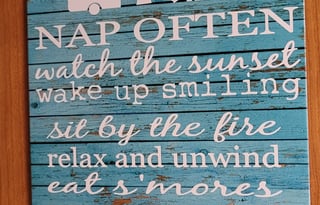 NAP OFTEN
watch the sunset
wake up smiling
sit by the fire
relax and unwind
eat s'mores